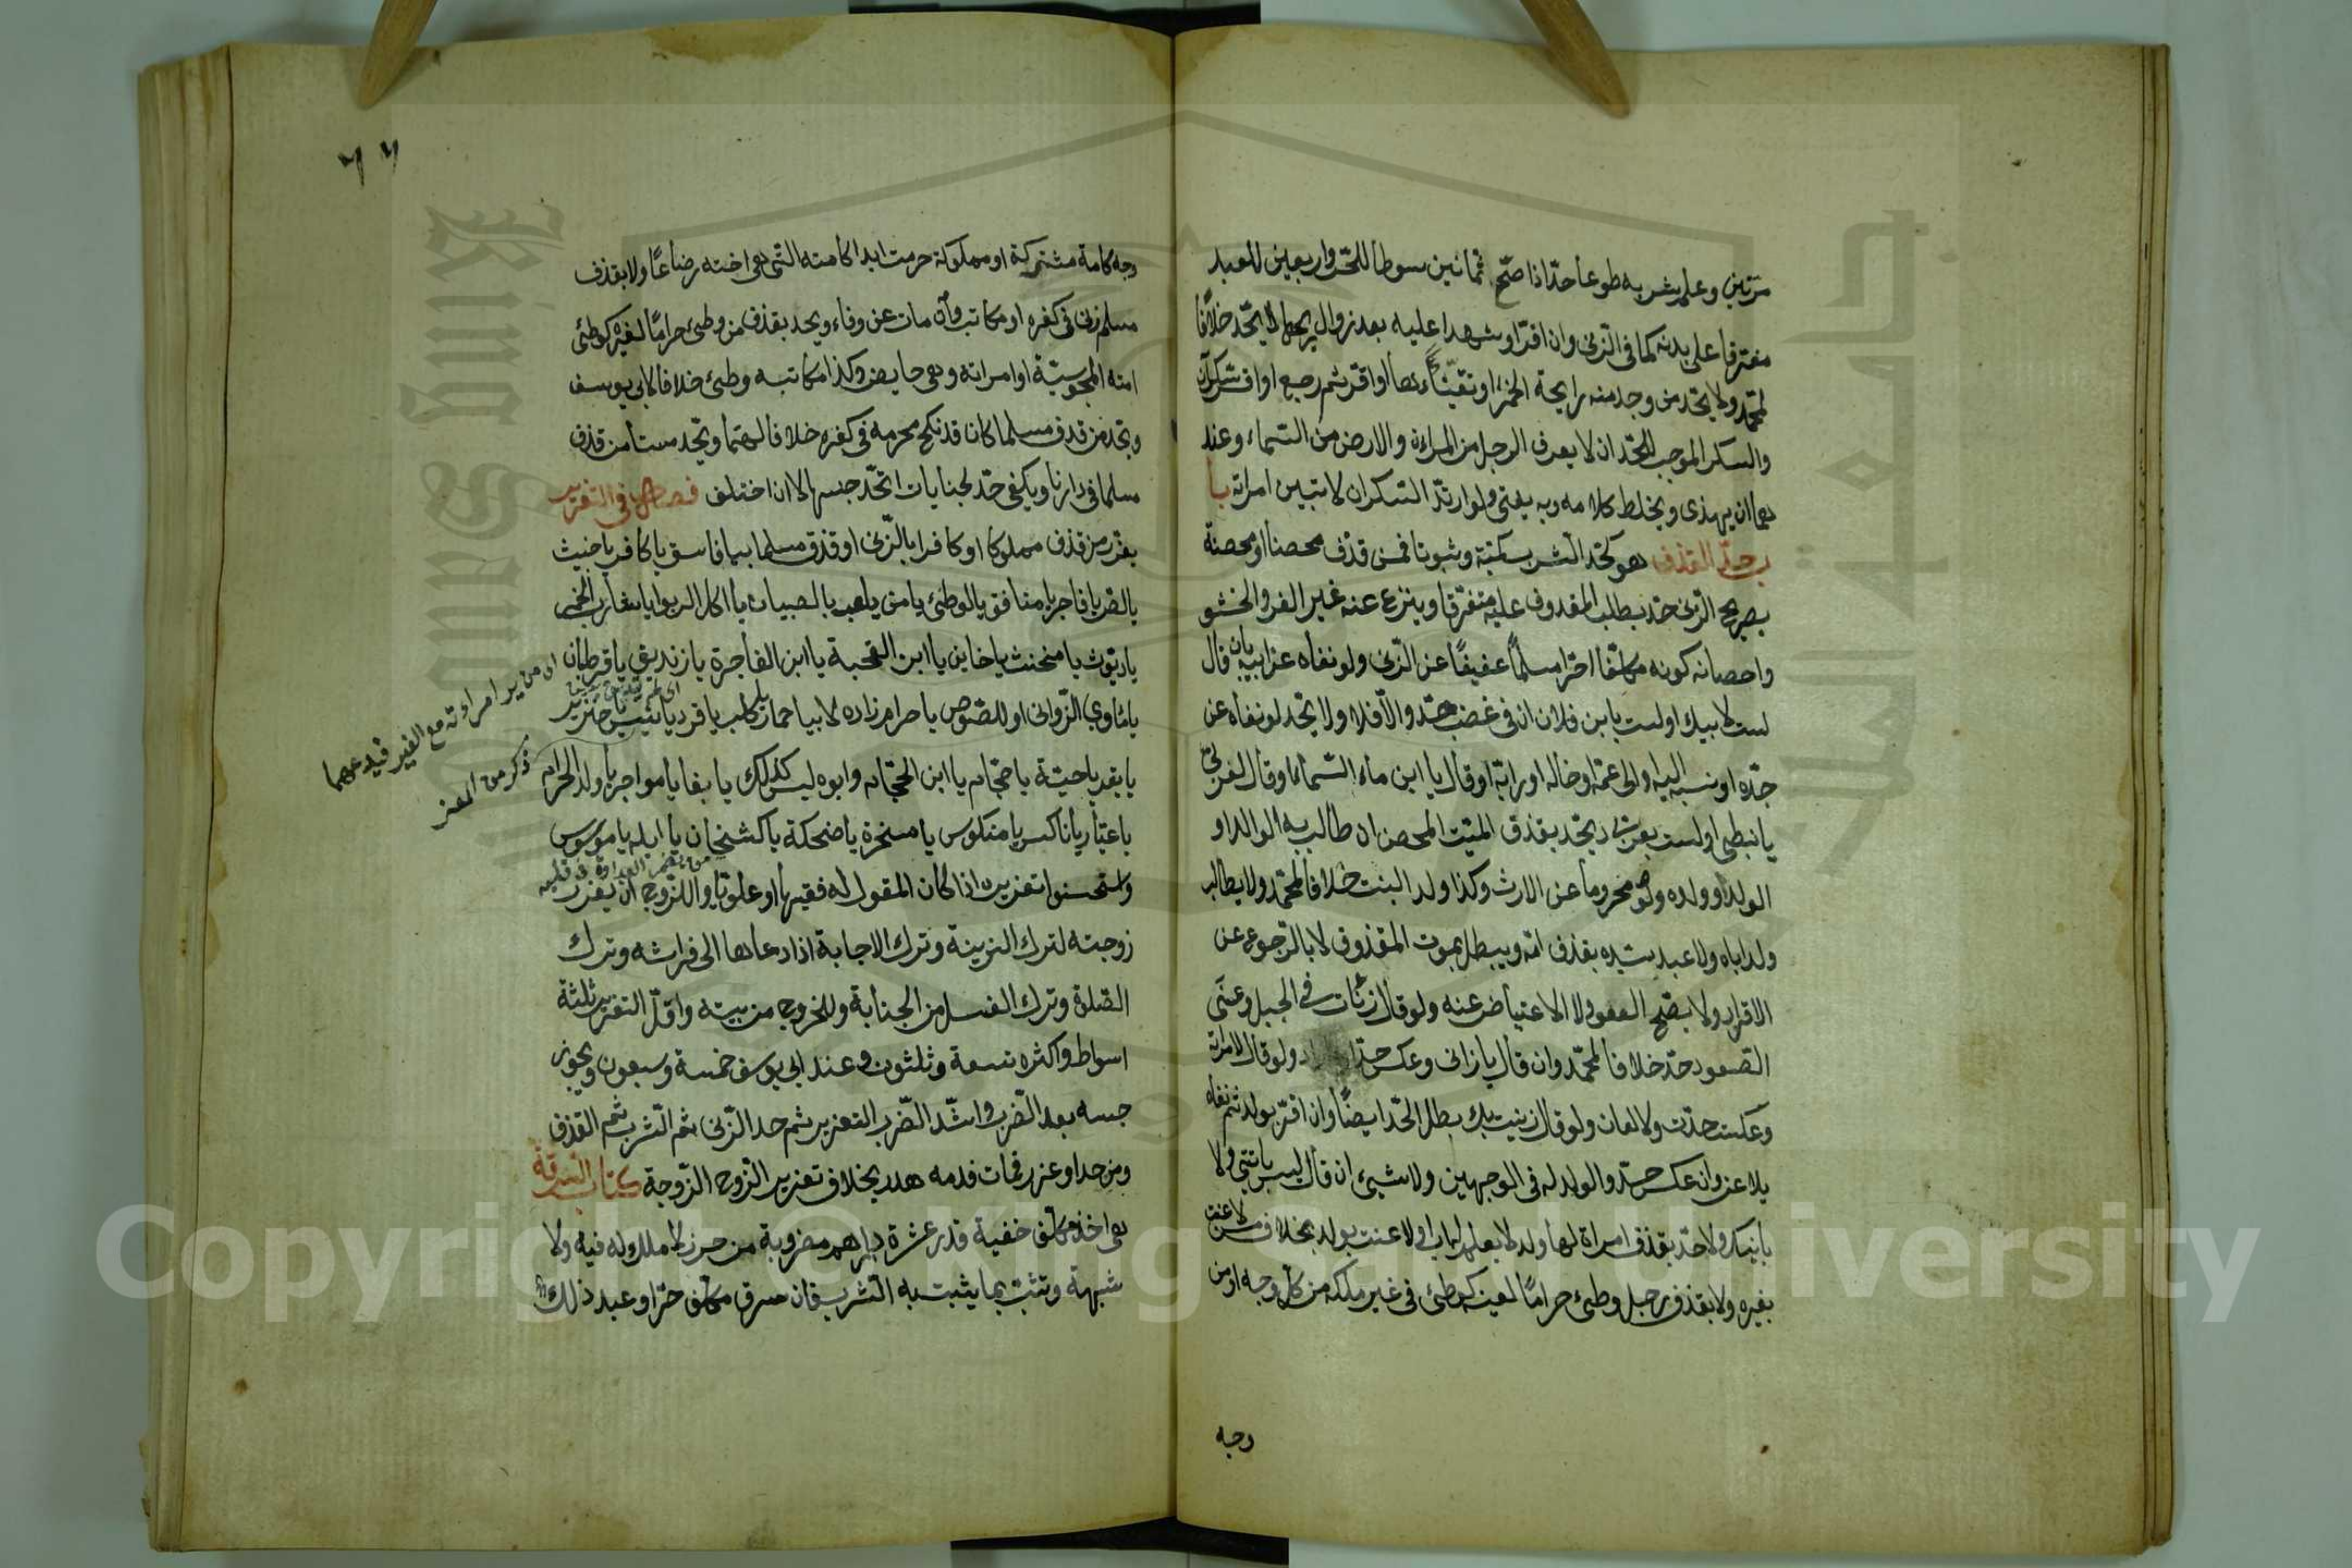 مرتين وعلم شربه طوعا حدّ اذا صحّ ثمانين سوطا للحرّ واربعين للعبد
مفترقا على بدنه كما في الزنى وان اقرّ او شهدا عليه بعد زوال ريحها لا يحدّ خلافًا
لمحمّد ولا يحدّ من وجد منه رايحة الخمر او تقيّاءها او اقرّ ثم رجع او اقر سكران
والسكر الموجب للحّد ان لا يعرف الرجل من المراءة والارض من السّماء وعند
هما ان يهذى ويخلط كلامه وبه يفتى ولو ارتدّ السّكران لا تبين امراته با
ب حدّ القذف هو كحّد الشرب كمّية وثبوتا فمن قذف محصنا او محصنة
بصريح الزّنى حدّ بطلب المقذوف عليه متفرّقا وينزع عنه غير الفرو والحشو
واحصانه كونه مكلّفا حرّا مسلماً عفيفًا عن الزّنى ولو نفاه عن ابيه بان قال
لست لابيك او لست بابن فلان ان في غضب حدّ والّا فلا ولا يحّد لو نفاه عن
جدّه او نسبه اليه والى عمّه او خاله او رابّه او قال يا ابن ماء السّماء او قال لعربّي
يا نبطى او لست بعربى ويحّد بقذف الميّت المحصن ان طالب به الوالد او
الولد او ولده ولو محروما عن الارث وكذا ولد البنت خلافا لمحّمد ولا يطالب
ولد اباه ولا عبد سيّده بقذف امّه ويبطل بموت المقذوف لا بالرّجوع عن
الاقرار ولا يصّح العفو ولا الاعتياض عنه ولو قال زنأت في الجبل وعنى
الصّعود حدّ خلافا لمحّمد وان قال يا زانى وعكس حدّا ولو قال لامراته
وعكست حدّت ولا لعان ولو قال زنيت بك بطل الحّد ايضًا وان اقرّ بولد ثم نفاه
يلاعن وان عكس حدّ والولد له في الوجهين ولا شيئ ان قال ليس بابنى ولا
بابنك ولا حدّ بقذف امراة لها ولد لا يعلم له اب او لاعنت بولد بخلاف من لاعنت
بغيره ولا بقذف رجل وطئ حرامًا لعينه كوطئ في غير ملكه من كلّ وجه او من
وجه
٦٦
وجه كامة مشتركة او مملوكة حرمت ابدا كامته الّتى هي اخته رضاعًا ولا بقذف
مسلم زنى في كفره او مكاتب وان مات عن وفاء ويحد بقذف من وطئ حرامًا لغيره كوطئ
امته المجوسيّة او امراته وهي حايض وكذا مكاتبه وطئ خلافا لابي يوسف
ويحّد من قذف مسلما كان قد نكح محرمه في كفره خلافا لهما ويحّد مستأمن قذف
مسلما في دارنا ويكفى حدّ لجنايات اتحّد جنسها لا ان اختلف فصل في التعزير
يعزّر من قذف مملوكا او كافرا بالزّنى او قذف مسلما بيا فاسق يا كافر يا خبيث
يا لصّ يا فاجر يا منافق يا لوطئ يا من يلعب بالصبيان يا اكل الربوا يا شارب الخمر
يا ديّوث يا مخنث يا خاين يا ابن القحبة يا ابن الفاجرة يا زنديق يا قرطبان
يا مأوى الزّوانى او للصّوص يا حرام زاده لا بيا حمار يا كلب يا قرد يا تيس يا خنزير
يا بقر يا حيّة يا حجّام يا ابن الحجّام وابوه ليس كذلك يا بغا يا مواجر يا ولد الحرام
يا عيّار يا ناكس يا منكوس يا مسخرة يا ضحكة يا كشخان يا ابله يا موسوس
واستحسنوا تعزيره اذا كان المقول له فقيها او علويّا وللزّوج ان يعزر
زوجته لترك الزينة وترك الاجابة اذا دعاها الى فراشه وترك
الصّلوة وترك الغسل من الجنابة وللخروج من بيته واقلّ التعزير ثلثة
اسواط واكثره تسعة وثلثون وعند ابي يوسف خمسة وسبعون ويجوز
حبسه بعد الضّرب واشّد الضّرب التعزير ثم حد الزّنى ثم الشّرب ثم القذف
ومن حد او عزر فمات فدمه هدر بخلاف تعزير الزّوج الزّوجة كتاب السّرقة
هي اخذ مكلّف خفية قدر عشرة دراهم مضروبة من حرز لا ملك له فيه ولا
شبهة وتثبت بما يثبت به الشّرب فان سرق مكلّف حرّ او عبد ذلك
من يرى امراوته مع الغير فيدعهما
ذكر من المعز